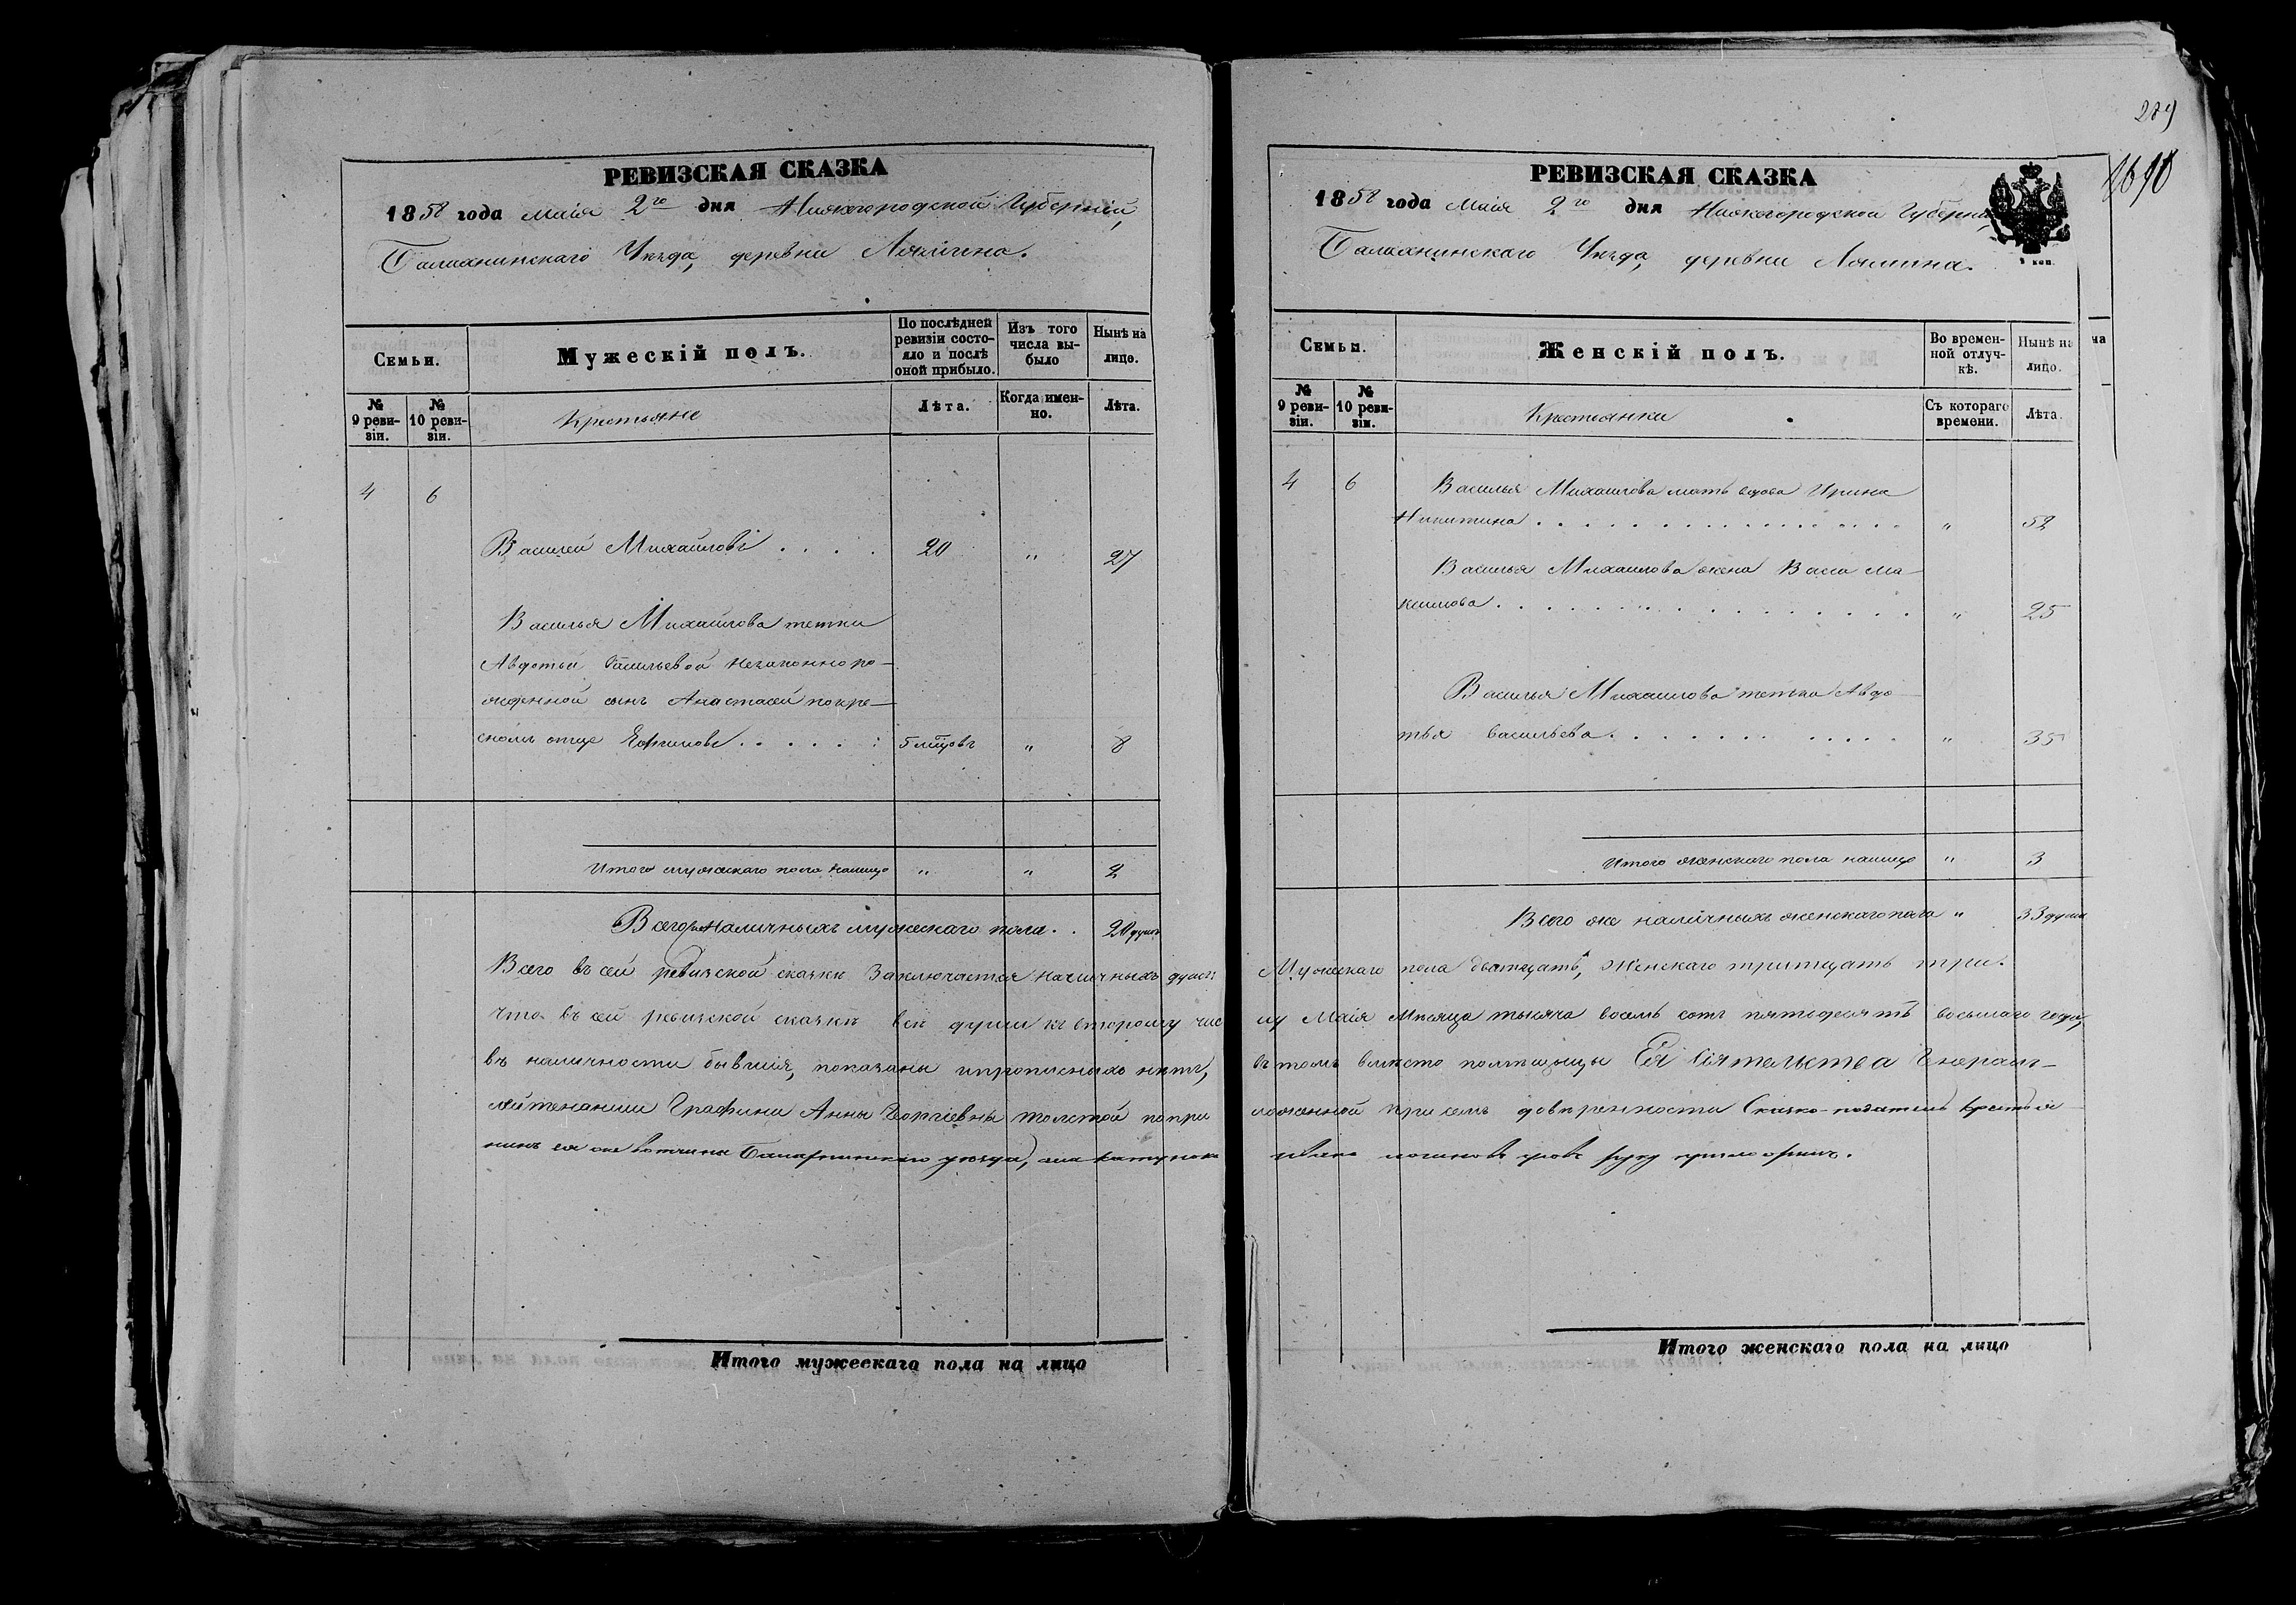 РЕВИЗСКАЯ СКАЗКА
1858 года Маія 2го дня Нижегородской Губерніи,
Балахнинскаго Уѣзда, деревни Лямина.
Семьи.
Мужескій полъ.
По послѣдней ревизіи состояло и послѣ оной прибыло.
Изъ того числа выбыло
Нынѣ на лицо.
№ 9 ревизіи.
№ 10 ревизіи.
Крестьяне
Лѣта.
Когда именно.
Лѣта.
4 6
Василей Михайловъ . . . . 20 " 27
Василья Михайлова тетки
Авдотьи Васильевой незаконноро-
жденной сынъ Анастасей покре-
сному отце Ефимовъ . . . . . : 5 мѣсцовъ " 8
Итого мужескаго пола налицо " " 2
Всего же наличныхъ мужескаго пола . . 20 душъ
Всего въ сей ревизской сказкѣ заключается наличныхъ душъ
что въ сей ревизской сказкѣ всѣ души къ второму чис
въ наличности бывшія, показаны и прописныхъ нѣтъ,
лейтенанши Графини Анны Георгіевны Толстой по при
нинъ ея же вотчины Балахнинскаго уѣзда, села Катунокъ
Итого мужескаго пола на лицо
289
РЕВИЗСКАЯ СКАЗКА
1858 года Маія 2го дня Нижегородской Губерніи,
Балахнинскаго Уѣзда, деревни Лямина.
1 коп.
Семьи.
Женскій полъ.
Во временной отлучкѣ.
Нынѣ на лицо.
на
№ 9 ревизіи.
№ 10 ревизіи.
Крестьянки
Съ котораго времени.
Лѣта.
4 6 Василья Михайлова мать вдова Ирина
Никитина . . . . . . . . . . . . . . . " 52
Василья Михайлова жена Васа Ма-
ксимова . . . . . . . . . . . . . . . " 25
Василья Михайлова тетка Авдо-
тья Васильева . . . . . . . . . . . " 35
Итого женскаго пола налицо " 3
Всего же наличныхъ женскаго пола " 33 души
Мужескаго пола дватцать, Женскаго тритцать три.
лу Маія Мѣсяца тысяча восемь сотъ пятьдесятъ восьмаго года,
въ томъ вместо помѣщицы Ея Сіятельства Генералъ-
ложенной при семъ довѣренности Сказко-податель крестья
руку приложилъ.
Итого женскаго пола на лицо